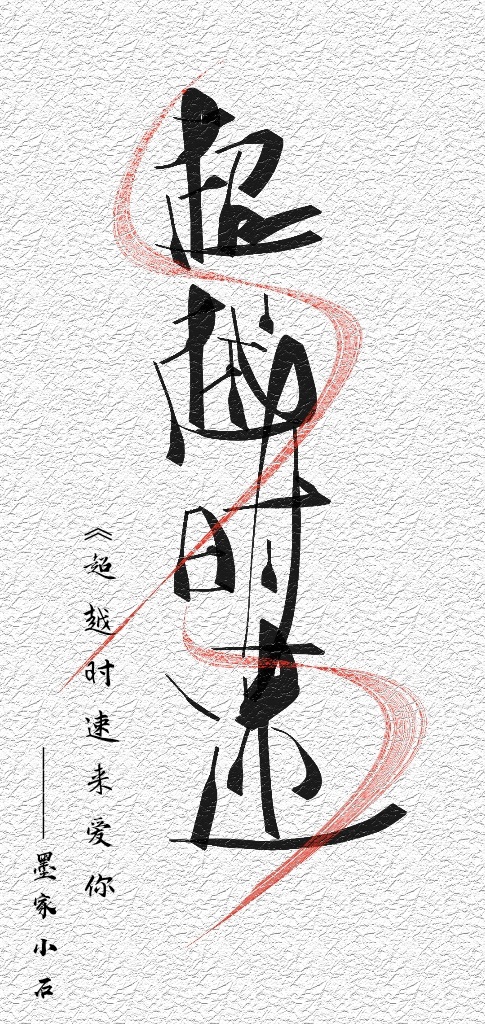 超越时速
《超越时速来爱你
——墨家小石